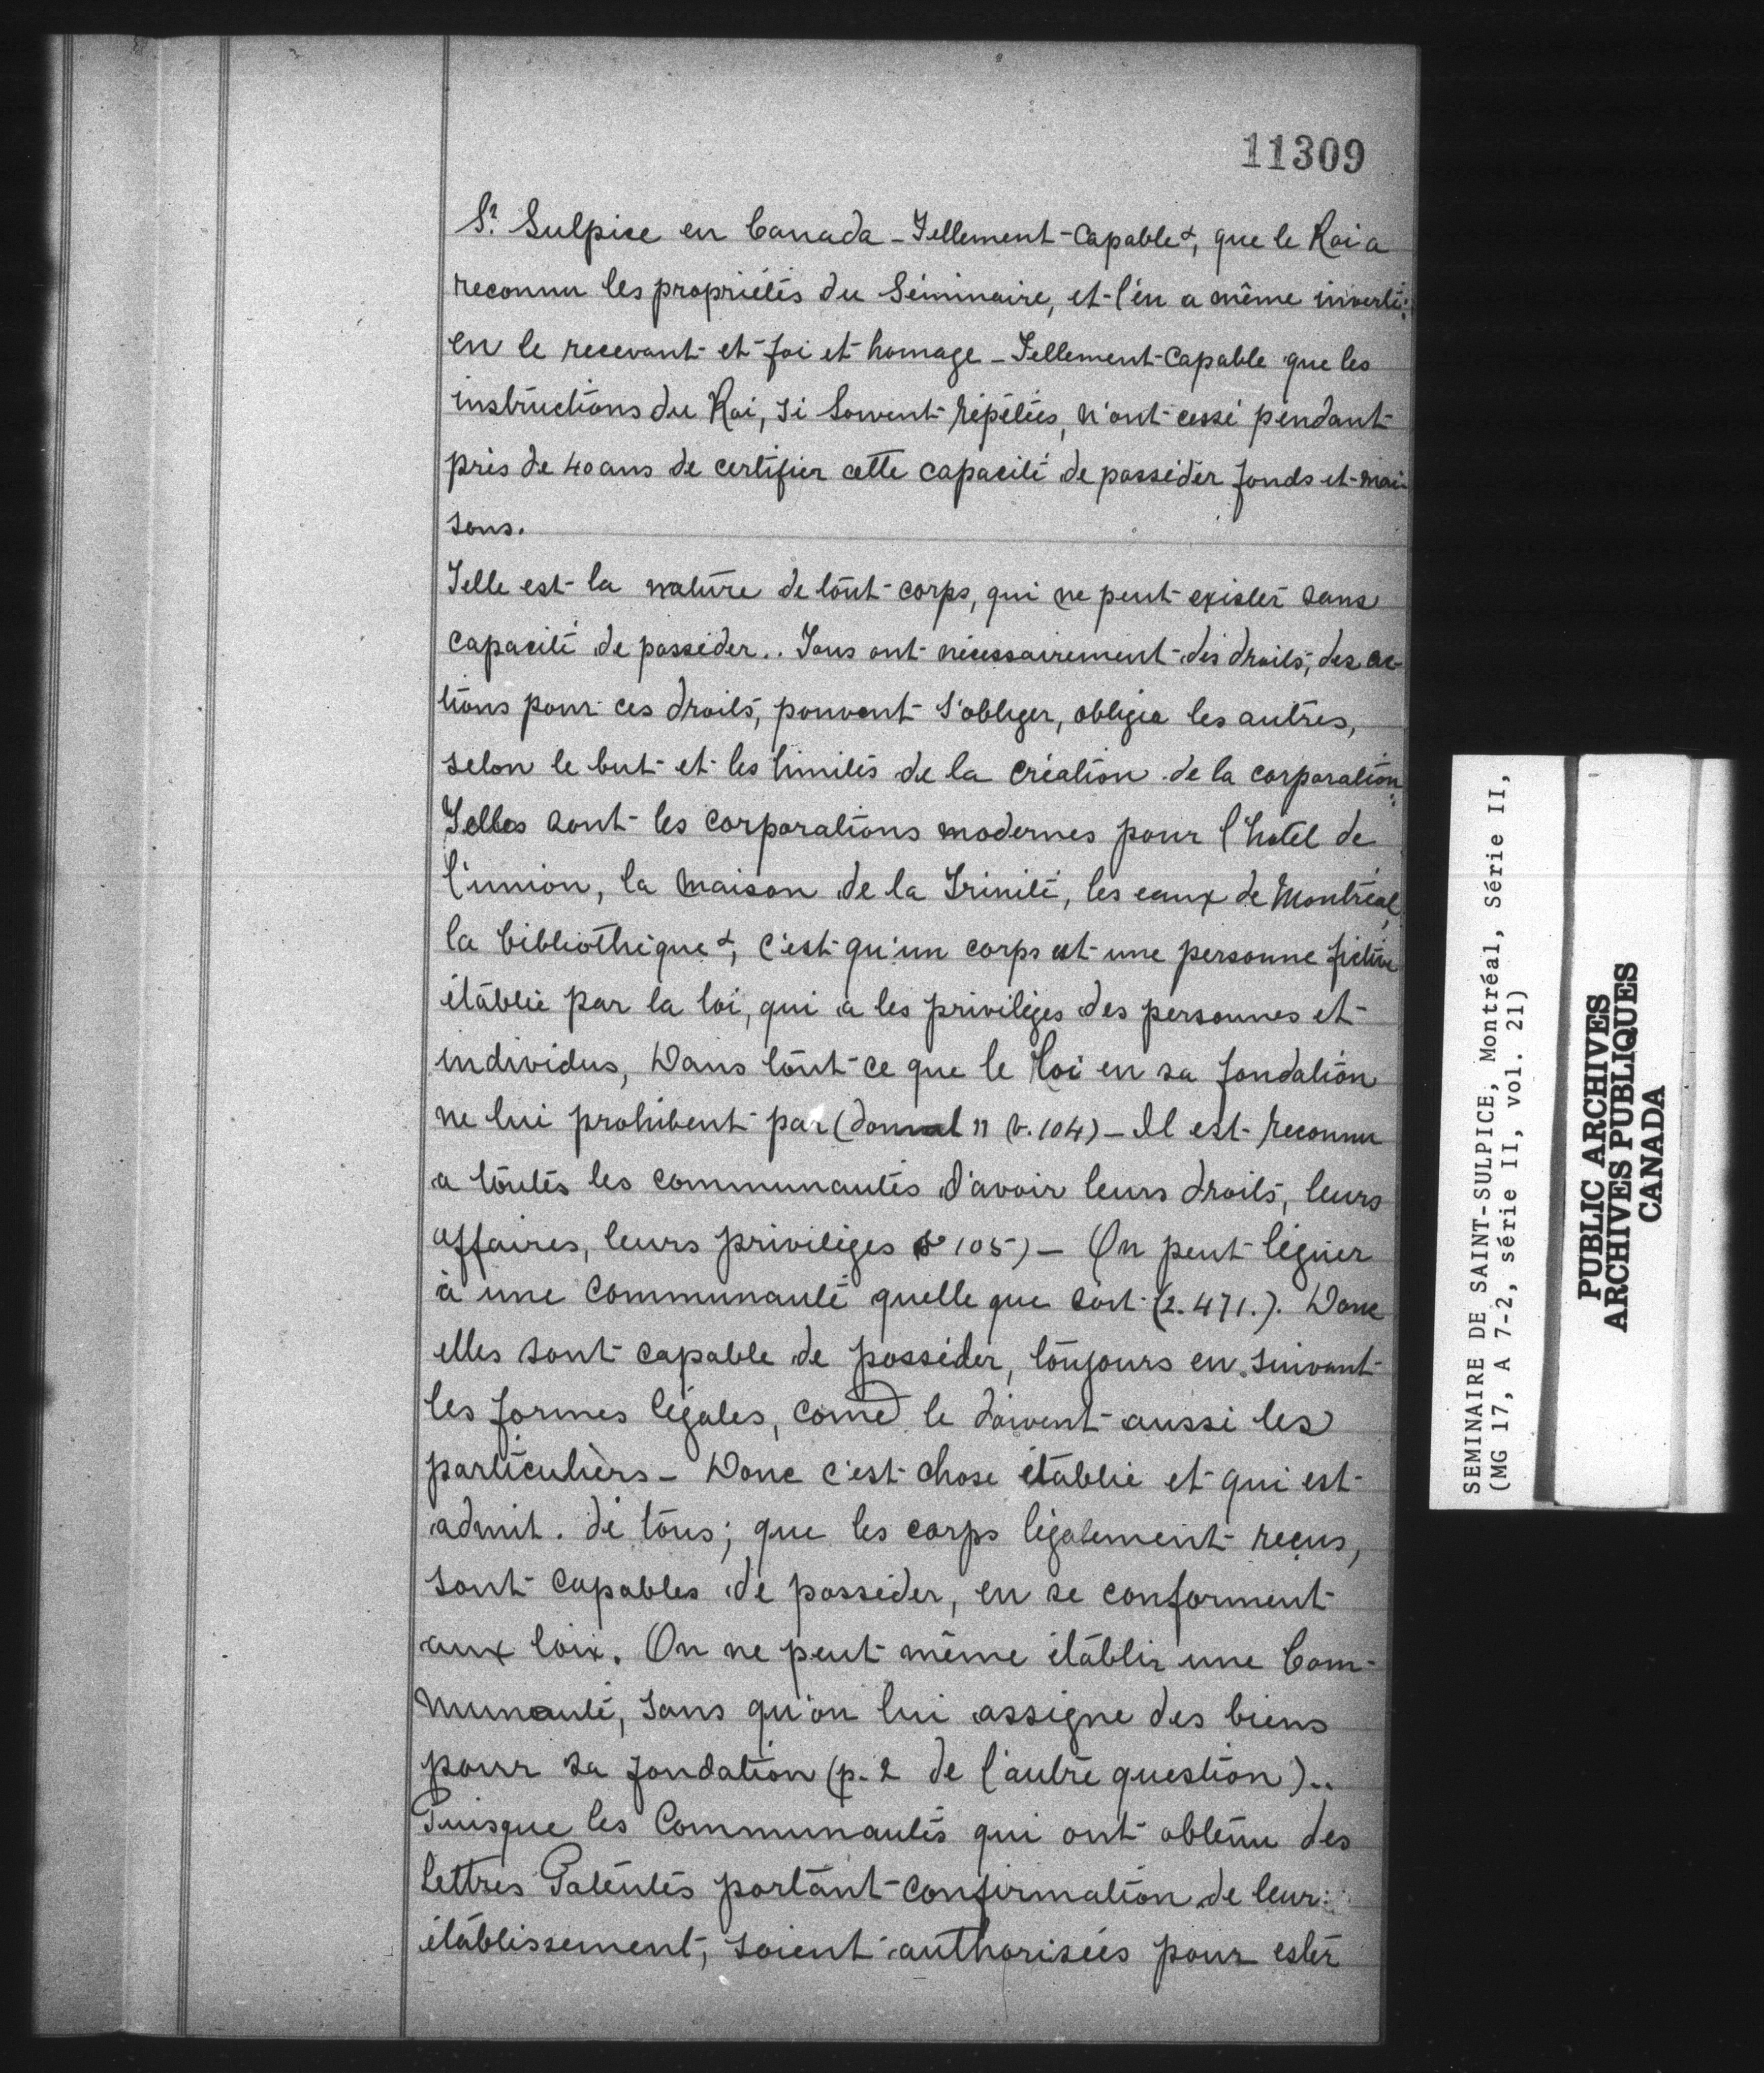 11309
St. Sulpice en Canada - Tellement capable &, que le Roi a
reconnu les propriétés du Séminaire, et l'en a même inverti
en le recevant et foi et homage - Tellement capable que les
instructions du Roi, si souvent répétées, n'ont cessé pendant
près de 40 ans de certifier cette capacité de posséder fonds et mai-
sons.
Telle est la nature de tout corps, qui ne peut exister sans
capacité de posséder.. Tous ont nécessairement des droits, des ac-
tions pour ces droits, pouvent s'obliger, obliger les autres,
selon le but et les limites de la création de la corporation.
Telles sont les corporations modernes pour l'hotel de
l'union, la maison de la Trinité, les eaux de Montréal,
la bibliothèque &, c'est qu'un corps est une personne fictive
établie par la loi, qui a les privilèges des personnes et
individus, Dans tout ce que le Roi en sa fondation
ne lui prohibent pas (domat 11 v. 104) - Il est reconnu
a toutes les communautés d'avoir leurs droits, leurs
affaires, leurs privilèges 105) - On peut léguer
à une communauté quelle que soit (2. 471.). Donc
elles sont capable de posséder, toujours en suivant
les formes légales, come le doivent aussi les
particuliers - Donc c'est chose établie et qui est
admit. de tous; que les corps légalement reçus,
sont capables de posséder, en se conforment
aux loix. On ne peut même établir une Com-
munauté, sans qu'on lui assigne des biens
pour sa fondation (p. 2 de l'autre question)..
Puisque les Communautés qui ont obtenu des
Lettres Patentes portant confirmation de leur
établissement, soient authorisées pour ester
SEMINAIRE DE SAINT-SULPICE, Montréal, Série II,
(MG 17, A 7-2, série II, vol. 21)
PUBLIC ARCHIVES
ARCHIVES PUBLIQUES
CANADA